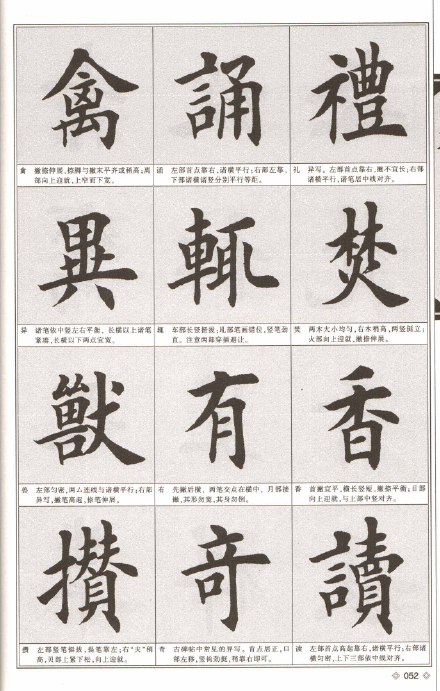 禽 誦 禮
禽 撇捺伸展,捺脚与撇末平齐或稍高;离
部向上迎就,上窄而下宽。
诵 左部首点靠右,诸横平行;右部左靠,
下部诸横诸竖分别平行等距。
礼 异写。左部首点靠右,撇不宜长;右部
诸横平行,诸笔居中线对齐。
異 輒 焚
异 诸笔依中竖左右平衡,长横以上诸笔
紧凑,长横以下两点宜宽。
辄 车部长竖挺拔;耴部笔画错位,竖笔劲
直。注意两部穿插避让。
焚 两木大小均匀,右木稍高,两竖挺立;
火部向上迎就,撇捺伸展。
獸 有 香
兽 左部匀密,两厶连线与诸横平行;右部
异写,撇笔高起,捺笔伸展。
有 先撇后横,两笔交点在横中,月部接
撇,其形勿宽,其身勿倒。
香 首撇宜平,横长竖短,撇捺平衡;日部
向上迎就,与上部中竖对齐。
攢 奇 讀
攒 左部竖笔挺拔,提笔靠左;右“夫”稍
高,贝部上紧下松,向上迎就。
奇 古碑帖中常见的异写。首点居正,口
部左移,竖钩劲挺,稍靠右即可。
读 左部首点高起靠右,诸横平行;右部诸
横匀密,上下三部依中线对齐。
052